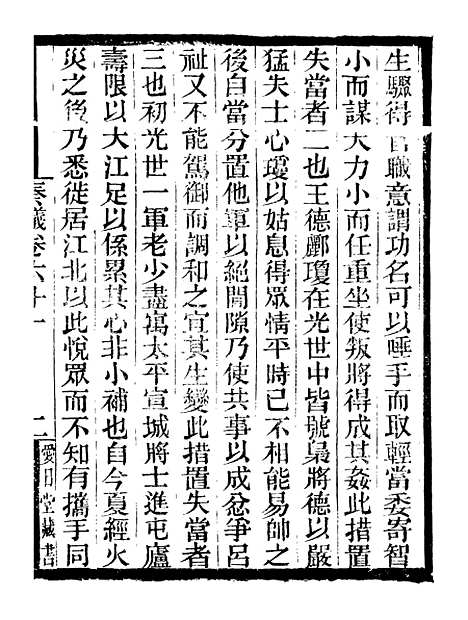 生驟得官職意謂功名可以唾手而取輕當委寄智
小而謀大力小而任重坐使叛將得成其姦此措置
失當者二也王德酈瓊在光世中皆號梟將德以嚴
猛失士心瓊以姑息得眾情平時已不相能易帥之
後自當分置他軍以絕閒隙乃使共事以成忿爭呂
祉又不能駕御而調和之宜其生變此措置失當者
三也初光世一軍老少盡寓太平宣城將士進屯廬
壽限以大江足以係累其心非小補也自今夏經火
災之後乃悉徙居江北以此悅眾而不知有攜手同
奏議卷六十一
二
愛日堂藏書